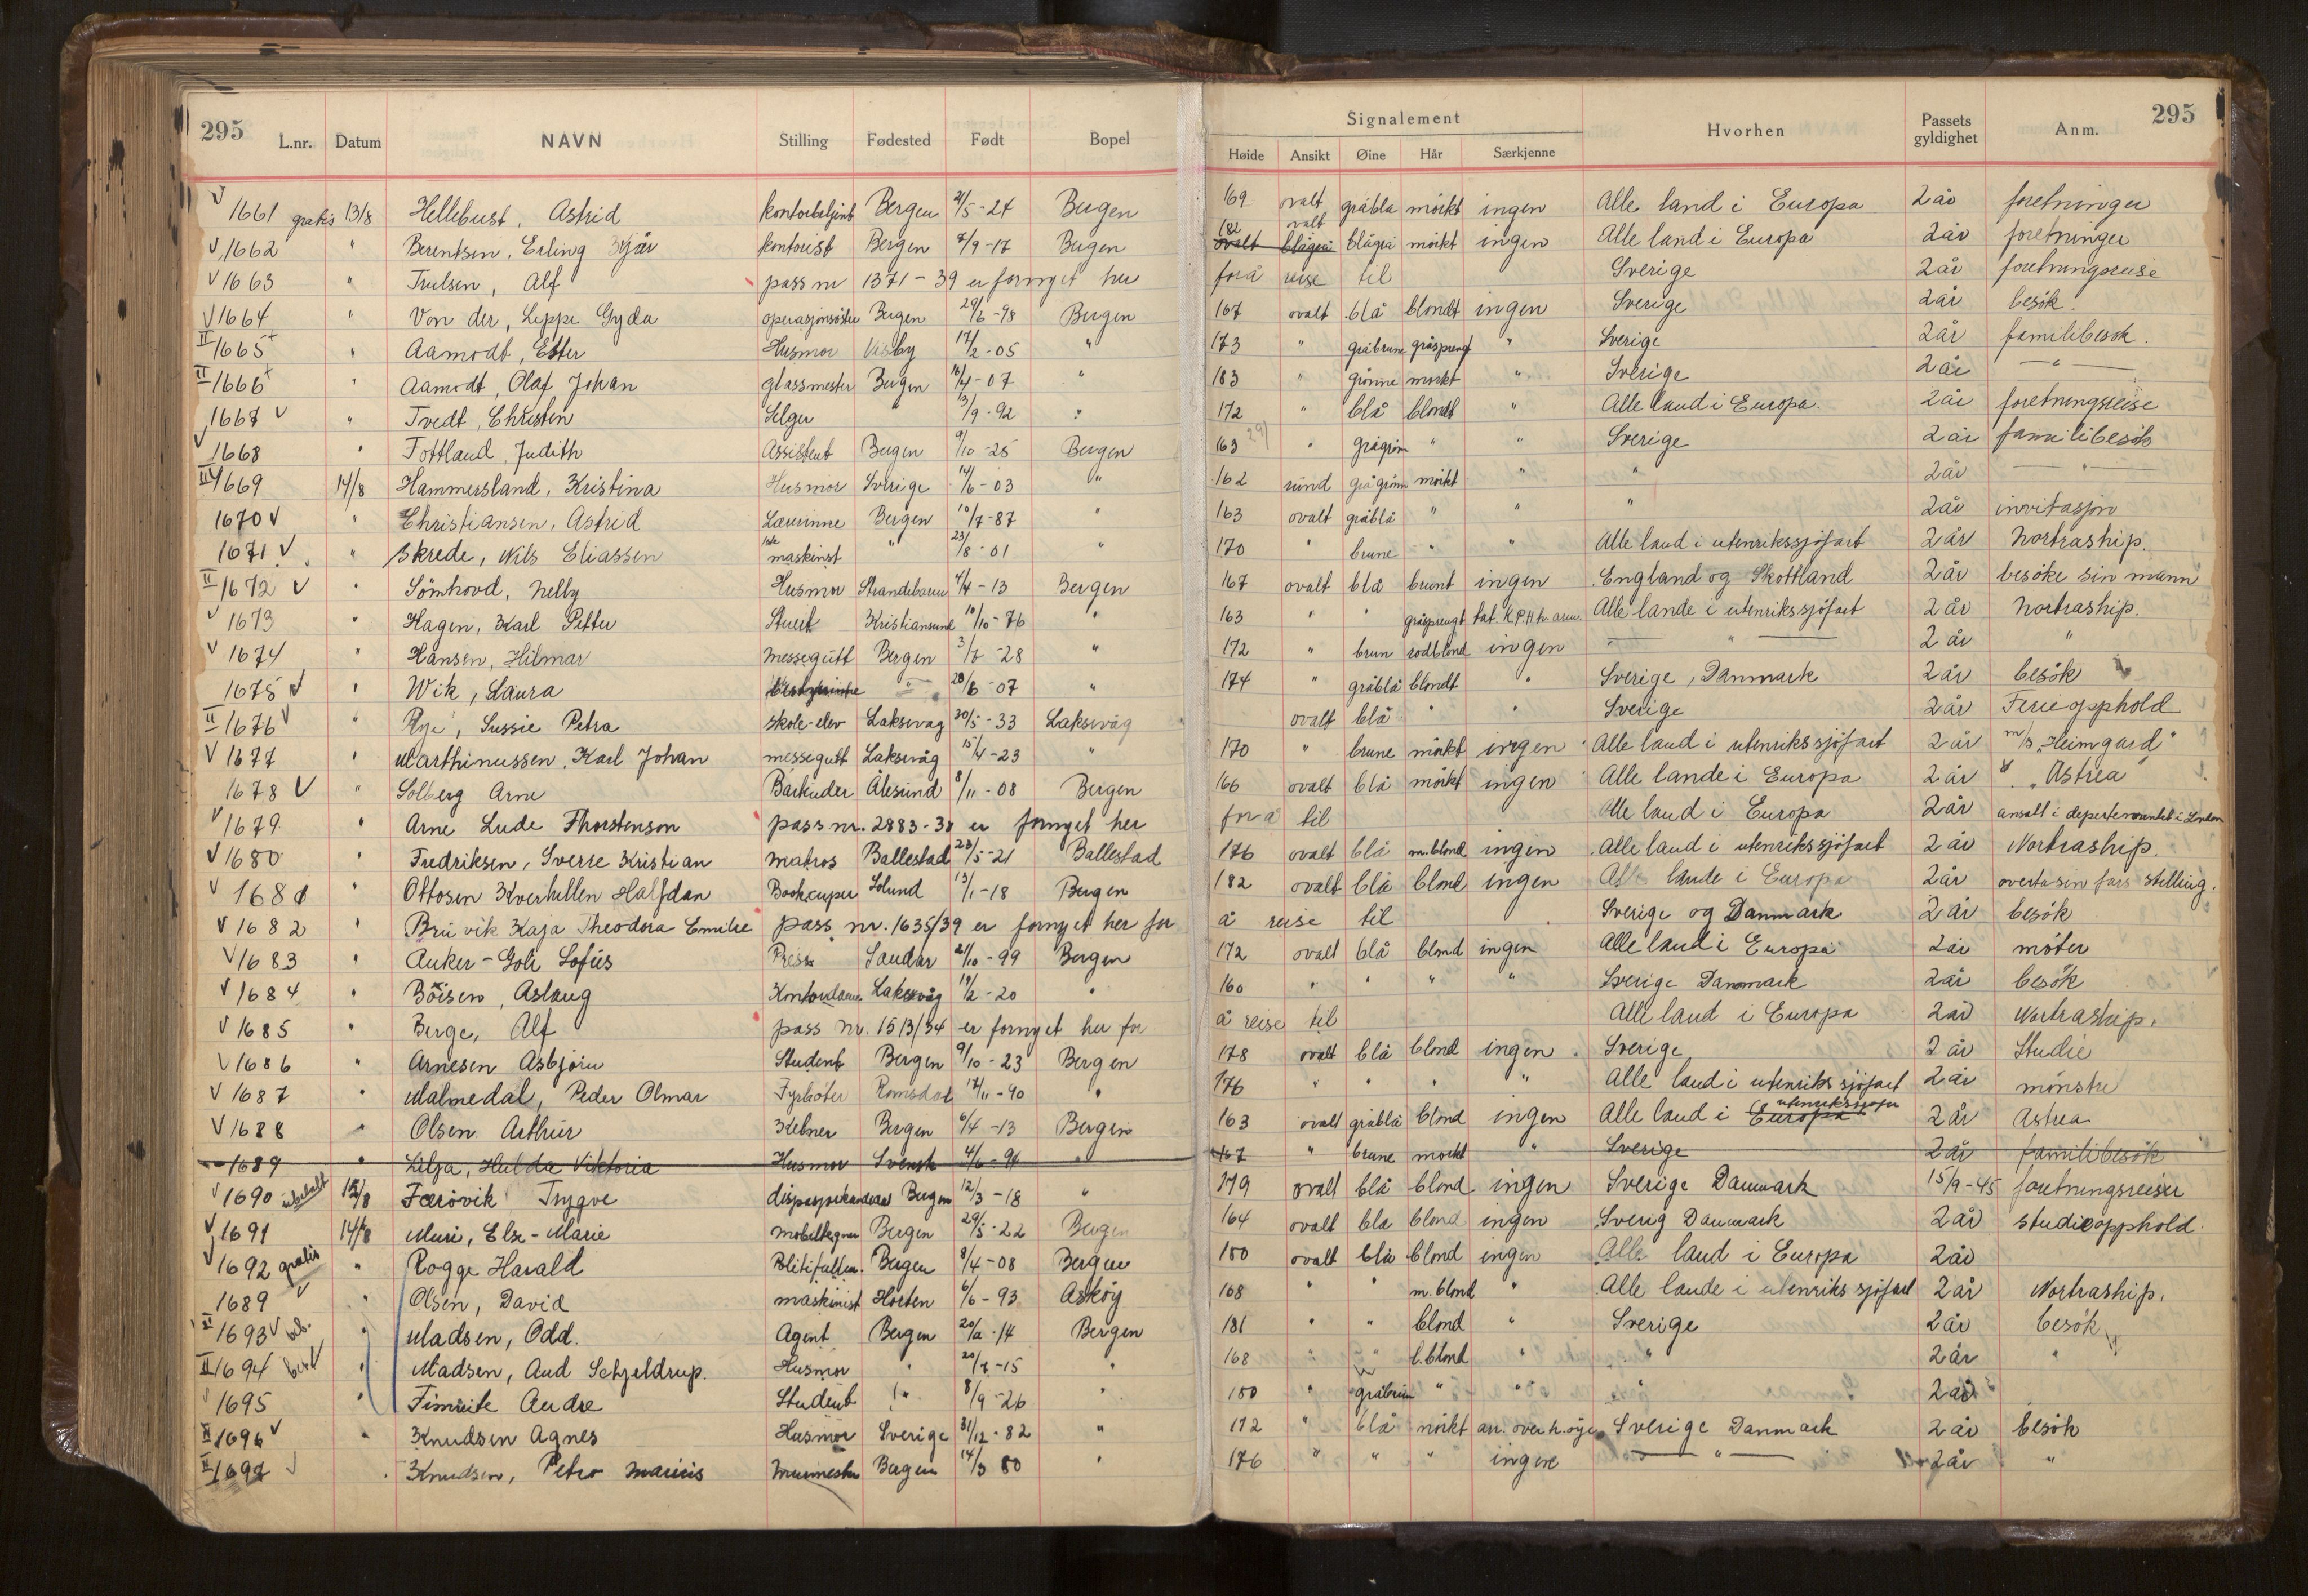 295
295
L.nr. Datum NAVN Stilling Fødested Født Bopel
Signalement
Høide Ansikt Øine Hår Særkjenne Hvorhen Passets gyldighet Anm.
1661 gratis 13/8 Hellebust, Astrid kontorbetjent Bergen 21/5-24 Bergen 169 ovalt gråblå mörkt ingen Alle land i Europa 2 år foretninger
1662 " Berentsen, Erling kontorist Bergen 7/9-17 Bergen 182 ovalt blågrå mörkt ingen Alle land i Europa 2 år foretninger
1663 " Trulsen, Alf pass nr 1371-39 er fornyet her for å reise til Sverige 2 år foretningsreise
1664 " Von der, Lippe Gyda operasjonsöster Bergen 29/6-98 Bergen 167 ovalt blå blondt ingen Sverige 2 år besök.
1665 " Aamodt, Ester Husmor Visby 17/2-05 " 173 " gråbrune gråsprengt " Sverige 2 år familibesök.
1666 " Aamodt, Olaf Johan glassmester Bergen 16/4-07 " 183 " grönne mörkt " Sverige 2 år "
1667 " Tvedt, Christen Selger " 3/9-92 " 172 " blå blondt " Alle land i Europa. 2 år foretningsreise
1668 " Tottland, Judith Assistent Bergen 9/10-25 Bergen 163 " grågrön " " Sverige 2 år familibesök
1669 14/8 Hammersland, Kristina Husmor Sverige 14/6-03 " 162 rund grågrönn mörkt " " 2 år "
1670 " Christiansen, Astrid Lærerinne Bergen 10/7-87 " 163 ovalt gråblå " " " 2 år invitasjon
1671 " Skrede, Nils Eliassen 1ste maskinist " 23/8-01 " 170 " brune " " Alle land i utenrikssjöfart 2 år Nortraship.
1672 " Sömhovd, Nelly Husmor Strandebarm 4/4-13 Bergen 167 ovalt blå brunt ingen England og Skottland 2 år besöke sin mann
1673 " Hagen, Karl Petter Stuert Kristiansund 10/10-76 " 163 " " gråsprengt tat. K.P.H. h. arm. Alle lande i utenrikssjöfart 2 år Nortraship.
1674 " Hansen, Hilmar messegutt Bergen 3/7-28 " 172 " brun rödblond ingen " 2 år "
1675 " Wik, Laura " 28/6-07 " 174 " gråblå blondt " Sverige, Danmark 2 år besök
1676 " Rye, Sussie Petra skole-elev Laksevåg 20/5-33 Laksevåg ovalt blå " " Sverige 2 år Ferieopphold
1677 " Marthinussen, Karl Johan messegutt Laksevåg 15/4-23 " 170 " brune mörkt ingen Alle land i utenrikssjöfart 2 år m/s "Heimgard"
1678 " Solberg Arne Bartender Ålesund 8/11-08 Bergen 166 ovalt blå mörkt ingen Alle lande i Europa 2 år "Astrea"
1679 " Arne Lude Thorstenson pass nr. 2883-38 er fornyet her for å til Alle land i Europa 2 år ansatt i departementet i London
1680 " Fredriksen, Sverre Kristian matros Ballestad 23/5-21 Ballestad 176 ovalt blå m.blond ingen Alle land i utenrikssjöfart 2 år Nortraship.
1681 " Ottosen Kverhellen Halfdan Solund 13/1-18 Bergen 182 ovalt blå blond ingen Alle lande i Europa 2 år overta sin fars stilling.
1682 " Bruvik Kaja Theodora Emilie pass nr. 1635/39 er fornyet her for å reise til Sverige og Danmark 2 år besök
1683 " Anker-Goli Lofus Sandar 21/10-99 Bergen 172 ovalt blå blond ingen Alle land i Europa 2 år möter
1684 " Böisen, Aslaug Kontordame Laksevåg 19/2-20 " 160 " " " " Sverige Danmark 2 år besök
1685 " Berge, Alf pass nr. 1513/34 er fornyet her for å reise til Alle land i Europa 2 år Nortraship.
1686 " Arnesen Asbjörn Student Bergen 9/10-23 Bergen 178 ovalt blå blond ingen Sverige 2 år Studie
1687 " Malmedal, Peder Olmar Fyrböter Romsdal 17/11-90 " 176 " " " " Alle land i utenrikssjöfart 2 år mönstre
1688 " Olsen Arthur Kelner Bergen 6/4-13 Bergen 163 ovalt gråblå blond ingen Alle land i Europa utenrikssjöfar 2 år Astrea
1689 " Lilja, Hulda Viktoria Husmor Svensk 4/6-94 " 167 " brune mörkt " Sverige 2 år familibesök
1690 ubetalt 15/8 Færövik Trygve Bergen 12/3-18 " 179 ovalt blå blond ingen Sverige Danmark 15/9-45 foretningsreiser
1691 14/8 Muri, Else-Marie möbeltegner Bergen 29/5-22 Bergen 164 ovalt blå blond ingen Sverig Danmark 2 år studieopphold.
1692 gratis " Rogge Harald Politifullm. Bergen 8/4-08 Bergen 180 ovalt blå blond ingen Alle land i Europa 2 år
1689 " Olsen, David maskinist Horten 6/6-93 Asköy 168 " " m.blond " Alle lande i utenriks sjöfart 2 år Nortraship.
1693 bet. " Madsen, Odd. Agent Bergen 20/2-14 Bergen 181 " " blond " Sverige 2 år besök
1694 bet " Madsen, Aud Schjeldrup. Husmor " 20/7-15 " 168 " " l.blond " " 2 år "
1695 " Fimreite Andre Student " 8/9-26 " 180 " gråbrun " " " 2 år
1696 " Knudsen Agnes Husmor Sverige 31/12-82 " 172 " blå mörkt arr. over h. öye Sverige Danmark 2 år besök
1697 Knudsen, Petro Marius Murmester Bergen 14/3 80 " 176 " " " ingen " 2 år "